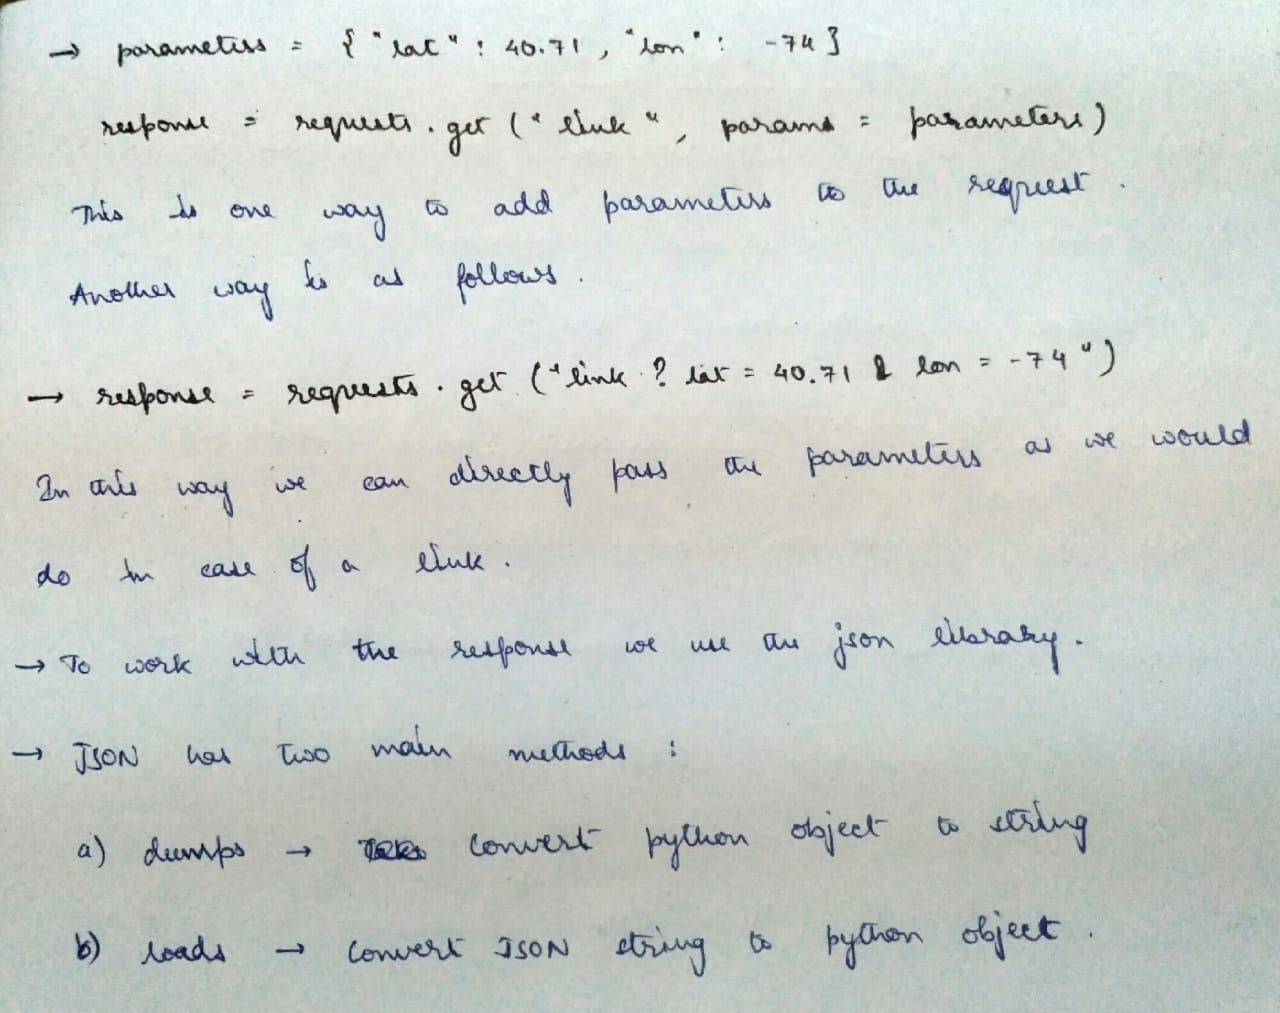 → parameters = { "lat" : 40.71 , "lon" : -74 }
response = requests.get ("link", params = parameters)
This is one way to add parameters to the request.
Another way is as follows.
→ response = requests.get ("link ? lat = 40.71 & lon = -74")
In this way we can directly pass the parameters as we would
do in case of a link.
→ To work with the response we use the json library.
→ JSON has two main methods :
a) dumps → convert python object to string
b) loads → convert JSON string to python object.